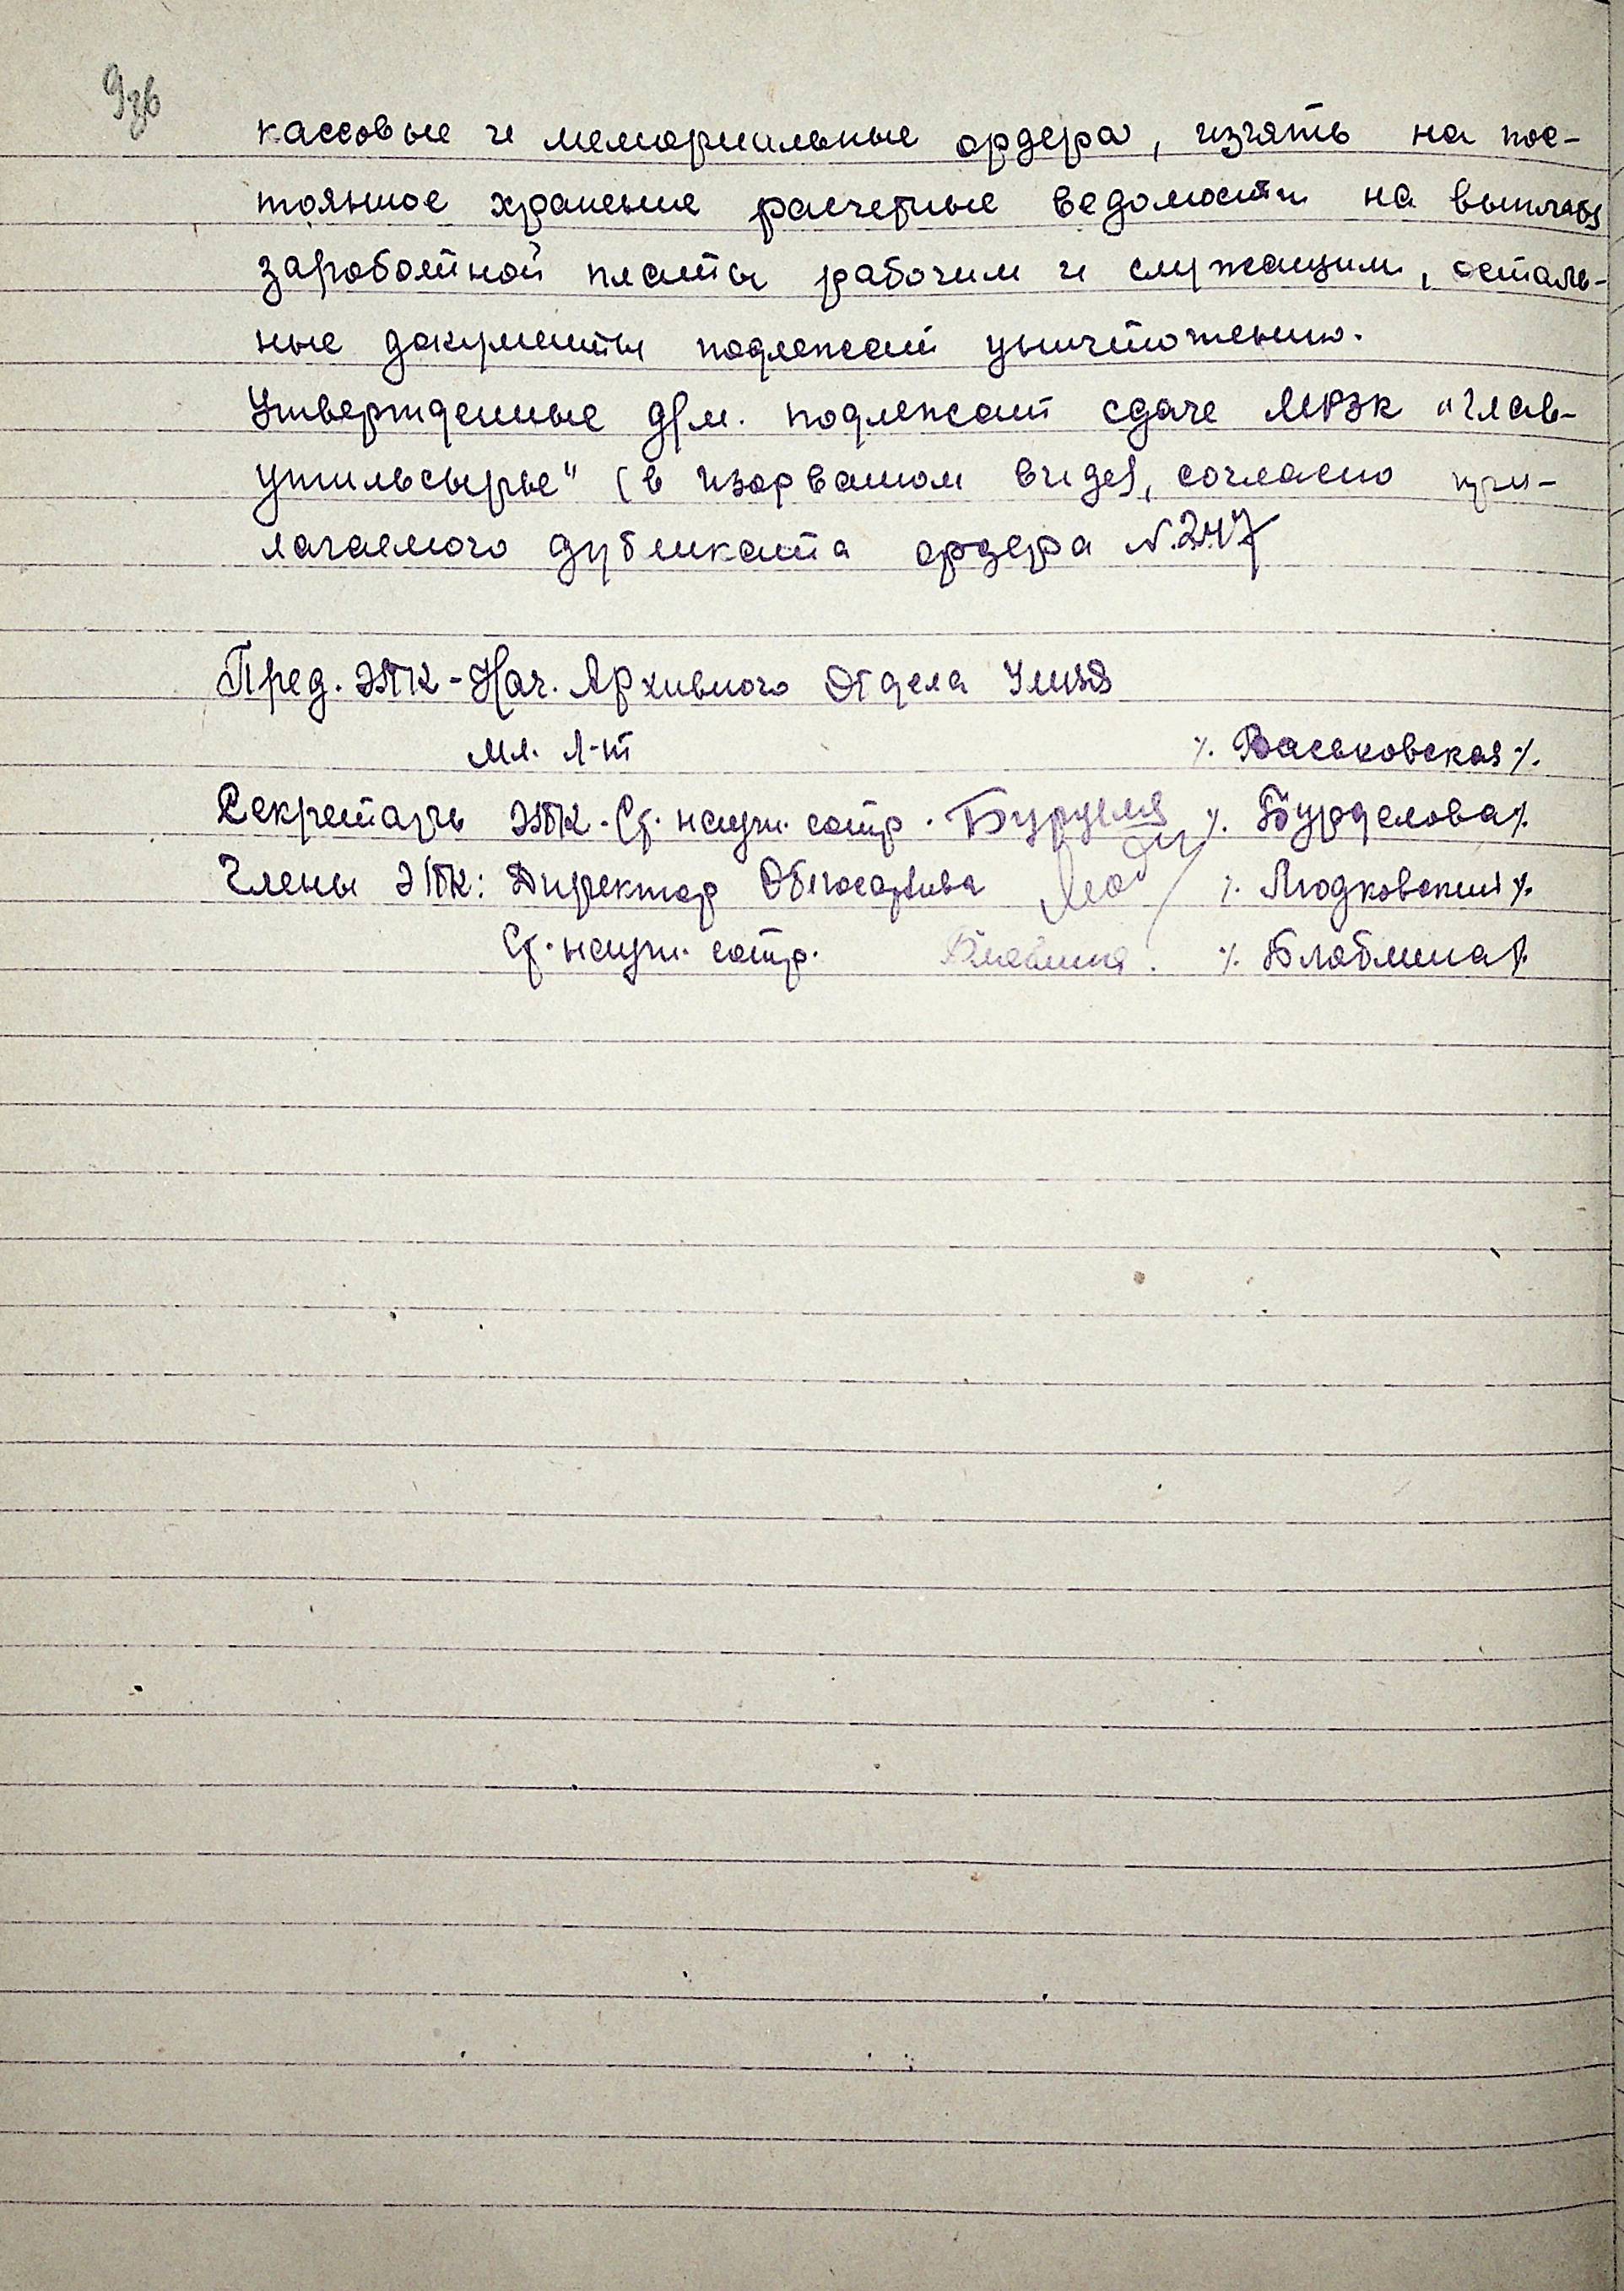 9зв
кассовые и мемориальные ордера, изъять на пос-
тоянное хранение расчетные ведомости на выплату
заработной платы рабочим и служащим, осталь-
ные документы подлежат уничтожению.
Утвержденные д/м. подлежат сдаче МРЗК "Глав-
утильсырье" (в изорваном виде), согласно при-
лагаемого дубликата ордера №247
Пред. ЭПК - Нач. Архивного Отдела УМВД
мл. л-т ٪. Васьковская ٪.
Секретарь ЭПК - Ст. научн. сотр. ٪. Бурделова ٪.
Члены ЭПК: Директор Облгосархива ٪. Людковский ٪.
Ст. научн. сотр. ٪. Блаблина ٪.